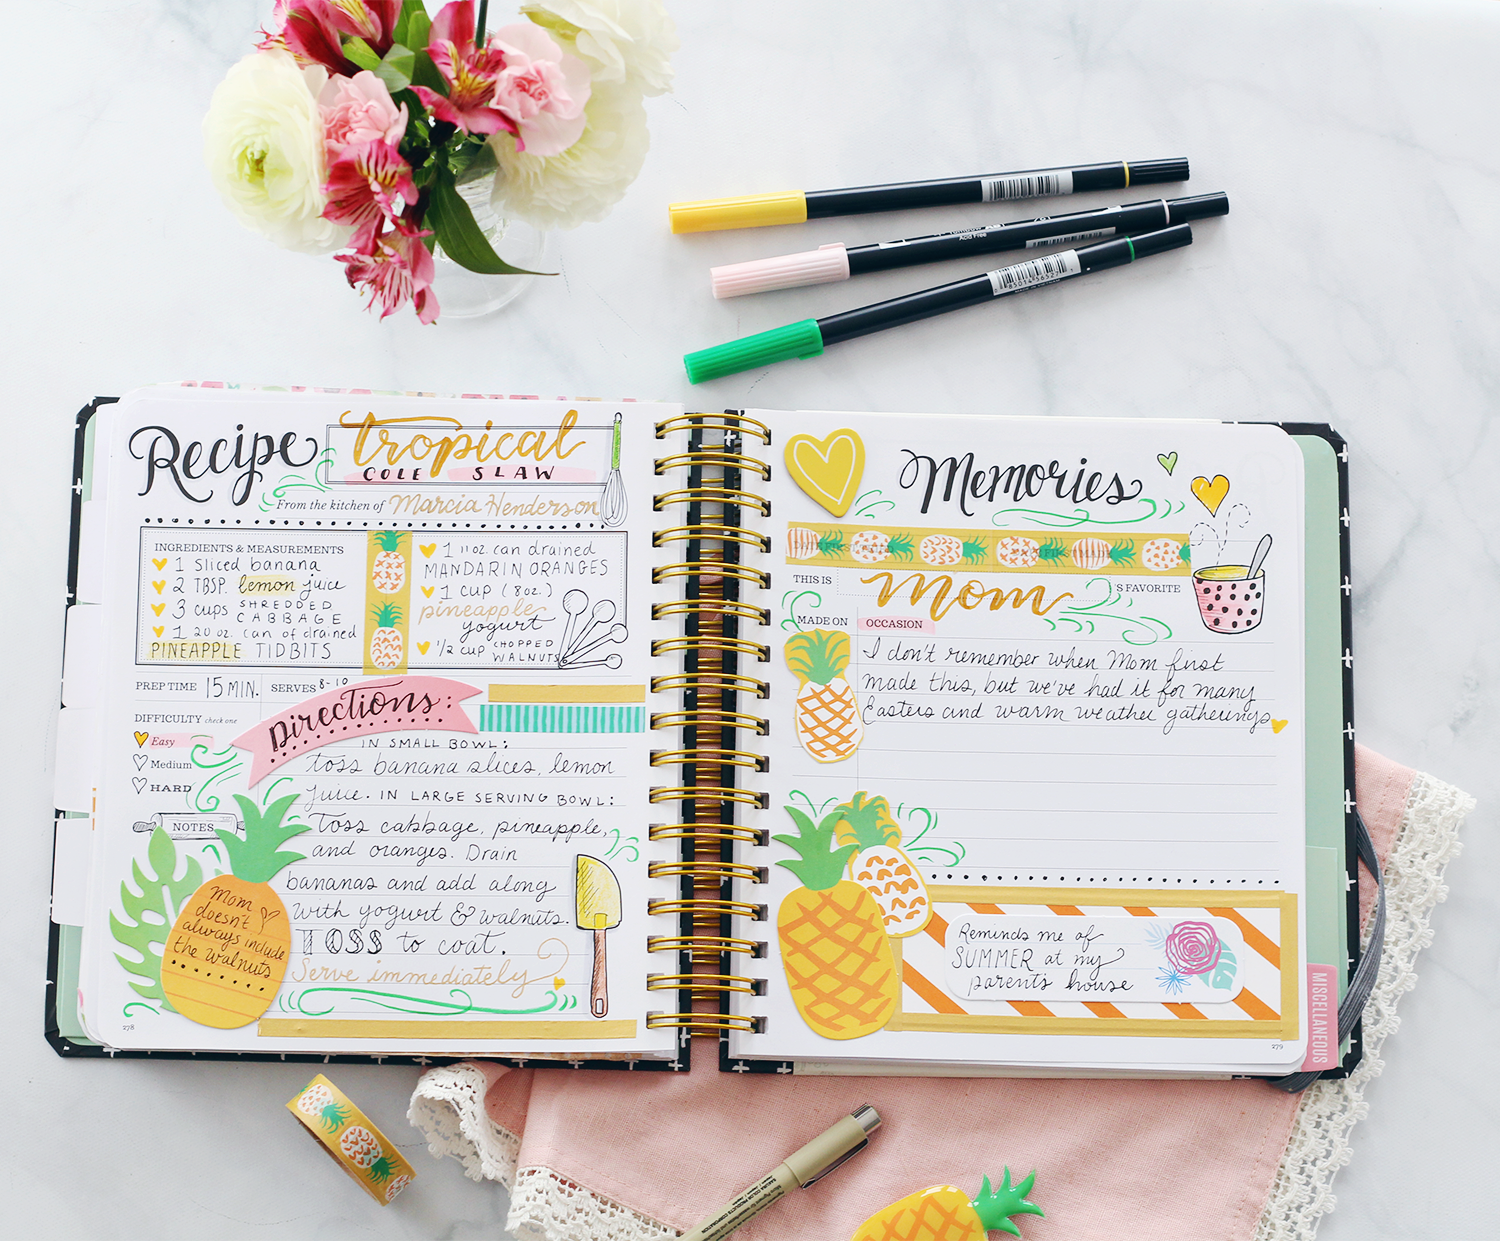 Add Free
85014 56527 7
Recipe
tropical
COLE SLAW
From the kitchen of Marcia Henderson
INGREDIENTS & MEASUREMENTS
1 sliced banana
2 TBSP. lemon juice
3 cups SHREDDED
CABBAGE
1 20 oz. can of drained
PINEAPPLE TIDBITS
1 11 oz. can drained
MANDARIN ORANGES
1 cup (8oz.)
pineapple
yogurt
1/2 cup CHOPPED
WALNUTS
PREP TIME 15 MIN. SERVES 8-10
DIFFICULTY check one
Easy
Medium
HARD
NOTES
Mom
doesn't
always include
the walnuts
Directions:
IN SMALL BOWL:
toss banana slices, lemon
juice. IN LARGE SERVING BOWL:
Toss cabbage, pineapple,
and oranges. Drain
bananas and add along
with yogurt & walnuts.
TOSS to coat.
Serve immediately
278
Memories
THIS IS Mom 'S FAVORITE
MADE ON OCCASION
I don't remember when Mom first
made this, but we've had it for many
Easters and warm weather gatherings
Reminds me of
SUMMER at my
parents house
279
MISCELLANEOUS